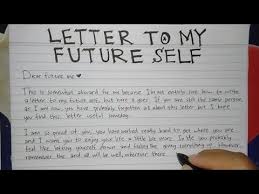 LETTER TO MY
FUTURE SELF
Dear future me ♥,
This is somewhat awkward for me because I'm not entirely sure how to write
a letter to my future self, but here it goes. If you are still the same person
as I am now, you have probably forgotten all about this letter but I hope
you find this letter useful someday.
I am so proud of you, you have worked really hard to get where you are
and I want you to enjoy your life a little bit more.
feel like letting yourself down and
remember me and all will be well,